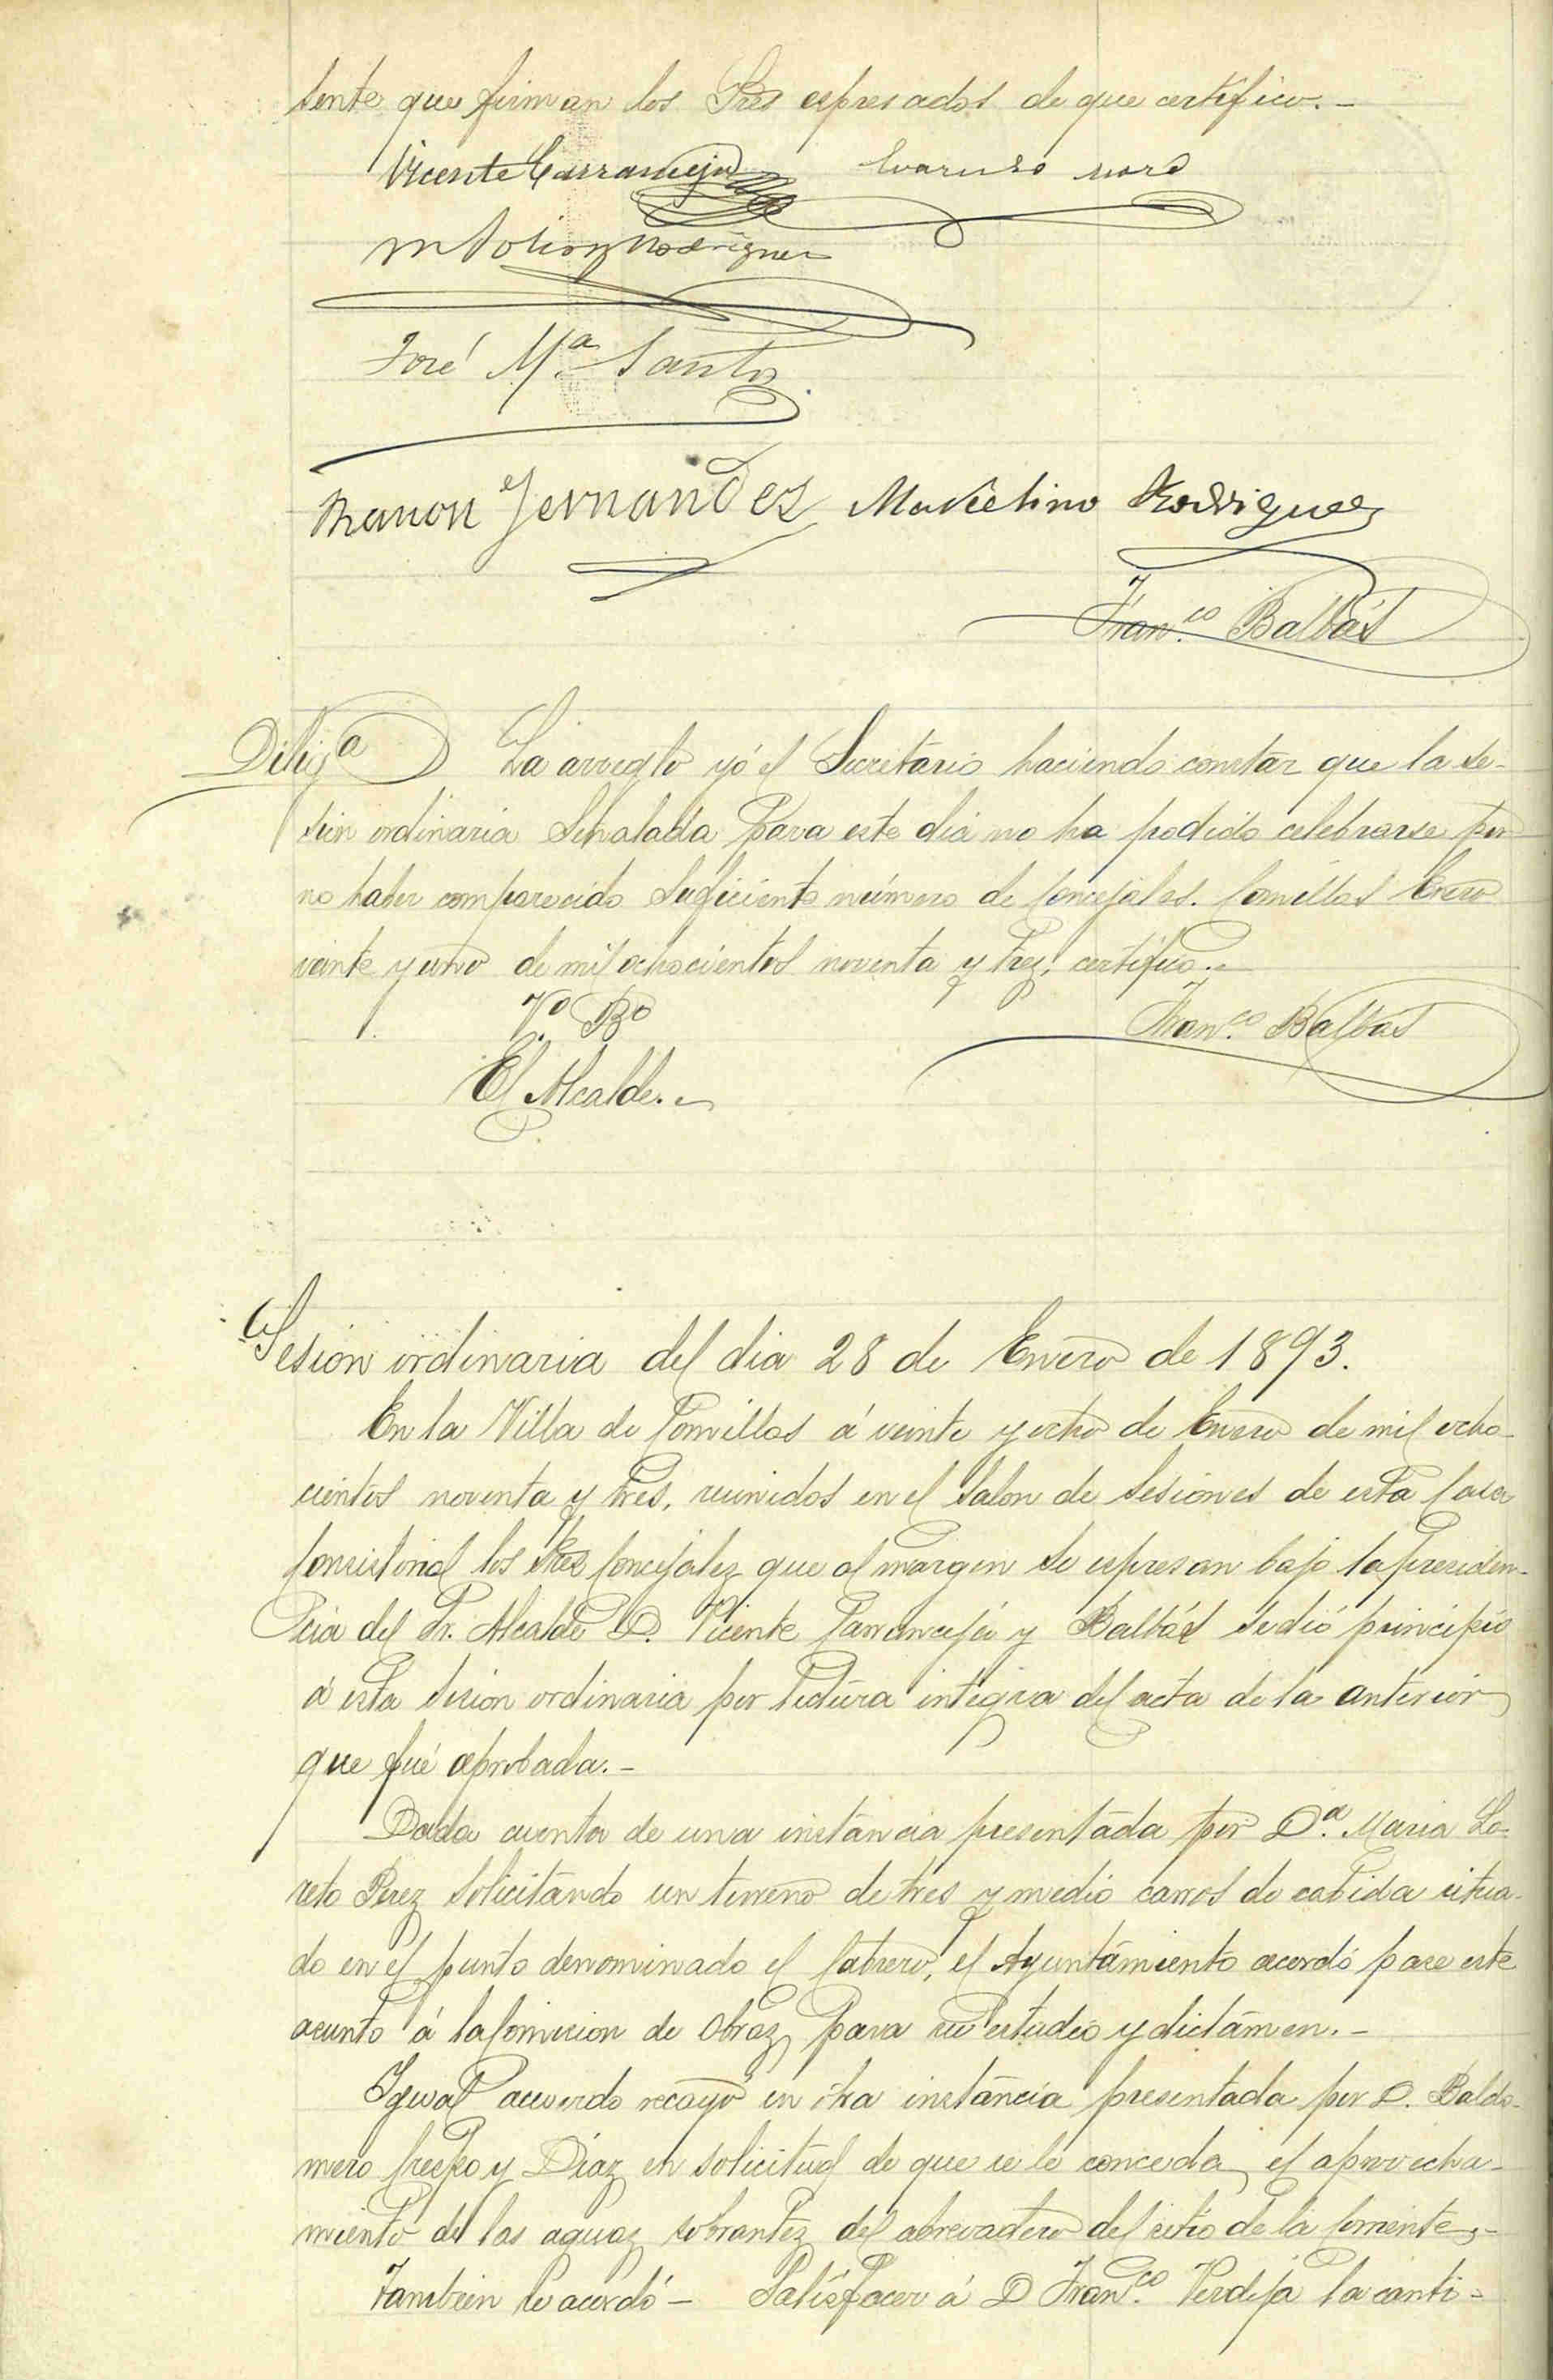 sente que firman los Sres espresados de que certifico.-
Vicente Carranceja
Mora
Rodriguez
José Mª Santos
Ramon Fernandez Marcelino Rodriguez
Fran.co Balbás
Diligª La arreglo yó el Secretario haciendo constar que la se-
sion ordinaria señalada para este dia no ha podido celebrarse por
no haber comparecido suficiente número de Concejales. Comillas Enero
veinte y uno de mil ochocientos noventa y tres, certifico.-
Vº Bº Fran.co Balbás
El Alcalde.-
Sesión ordinaria del dia 28 de Enero de 1893.
En la Villa de Comillas á veinte y ocho de Enero de mil ocho-
cientos noventa y tres, reunidos en el Salon de Sesiones de esta Casa
Consistorial los Sres Concejales que al margen se espresan bajo la presiden-
cia del Sr. Alcalde D. Vicente Carranceja y Balbás se dió principio
á esta sesion ordinaria por lectura integra del acta de la anterior
que fué aprobada.-
Dada cuenta de una instancia presentada por D.ª Maria Lo-
reto Perez solicitando un terreno de tres y medio carros de cabida situa-
do en el punto denominado el Cabrero, el Ayuntamiento acordó pase este
asunto á la Comision de Obras para su estudio y dictámen.-
Igual acuerdo recayó en otra instancia presentada por D. Baldo-
mero Crespo y Diaz en solicitud de que se le conceda el aprovecha-
miento de las aguas sobrantes del abrevadero del sitio de la Corriente,-
Tambien se acordó - Satisfacer á D Fran.co Verdeja la canti-